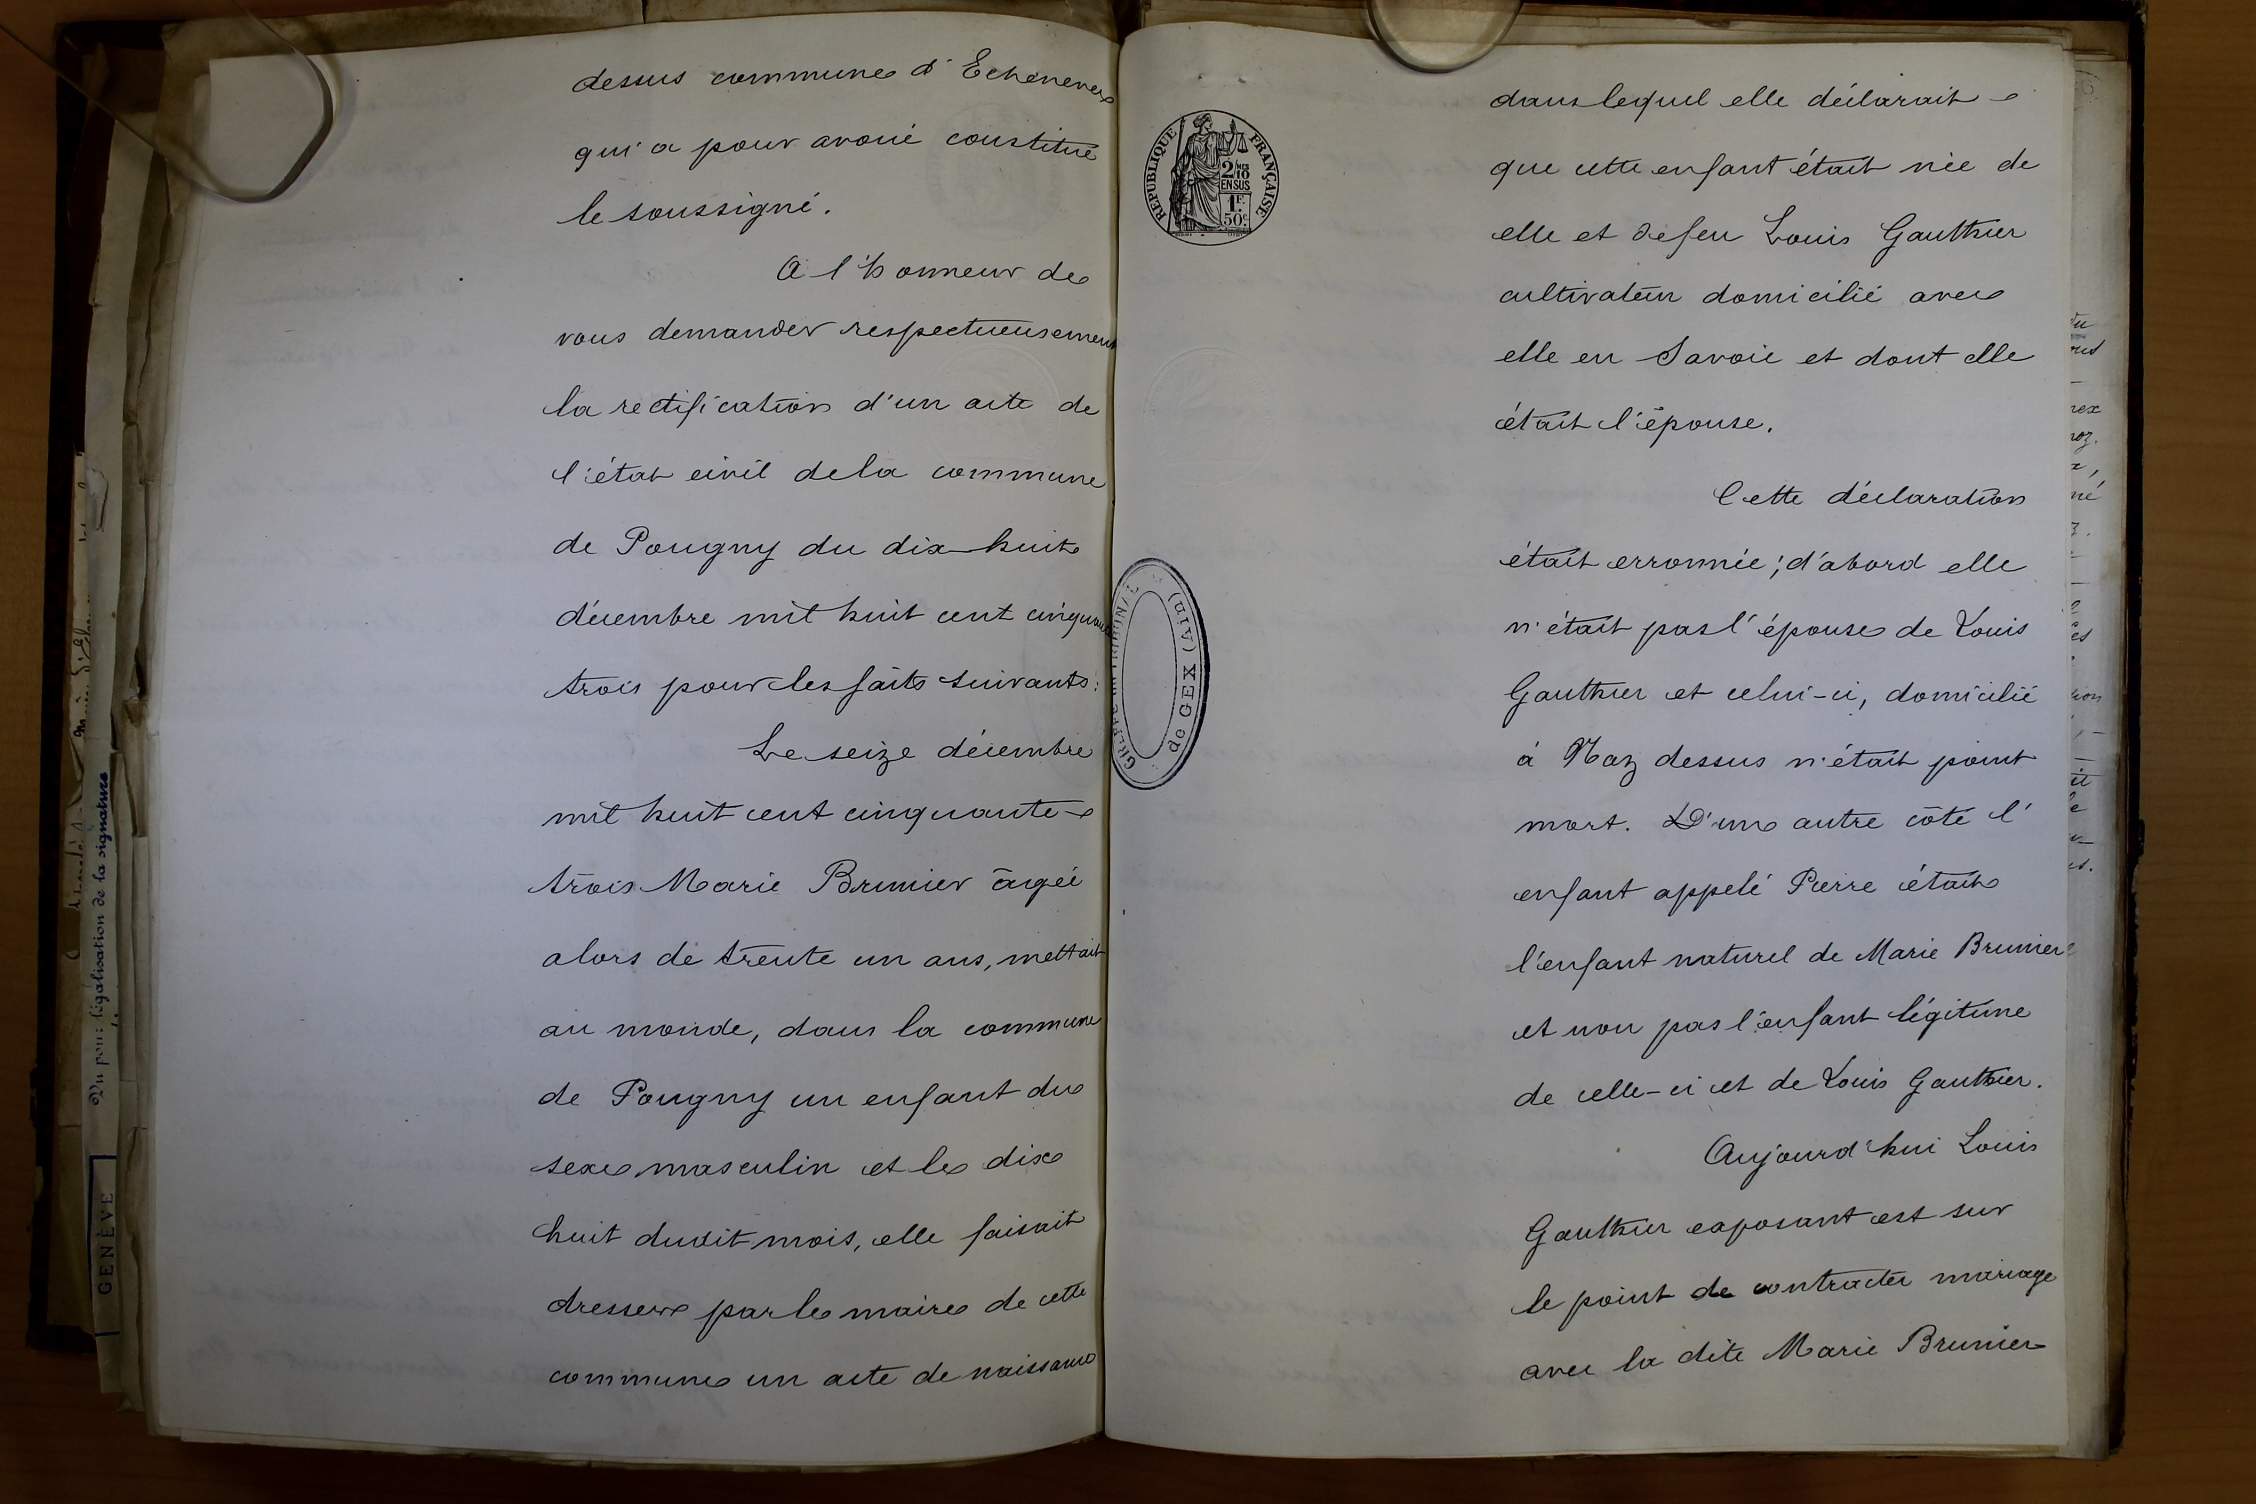 dessus commune d'Echenevex
qui a pour avoué constitué
le soussigné.
A l'honneur de
vous demander respectueusement
la rectification d'un acte de
l'état civil de la commune
de Pougny du dix-huit
décembre mil huit cent cinquante
trois pour les faits suivants:
Le seize décembre
mil huit cent cinquante-
trois Marie Brunier âgée
alors de trente un ans, mettait
au monde, dans la commune
de Pougny un enfant du
sexe masculin et le dix
huit dudit mois, elle faisait
dresser par le maire de cette
commune un acte de naissance
RÉPUBLIQUE FRANÇAISE
2/10
EN SUS
1F.
50c.
GREFFE du TRIBUNAL
de GEX (Ain)
dans lequel elle déclarait
que cette enfant était née de
elle et de feu Louis Gauthier
cultivateur domicilié avec
elle en Savoie et dont elle
était l'épouse.
Cette déclaration
était erronnée; d'abord elle
n'était pas l'épouse de Louis
Gauthier et celui-ci, domicilié
à Naz dessus n'était point
mort. D'un autre côté l'
enfant appelé Pierre était
l'enfant naturel de Marie Brunier
et non pas l'enfant légitime
de celle-ci et de Louis Gauthier.
Aujourd'hui Louis
Gauthier exposant est sur
le point de contracter mariage
avec la dite Marie Brunier
Vu pour légalisation de la signature
GENÈVE